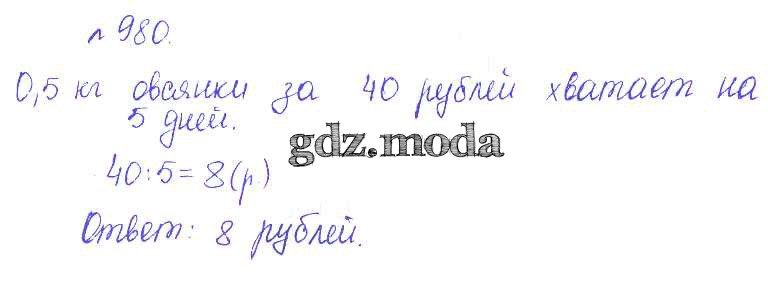 № 980.
0,5 кг овсянки за 40 рублей хватает на
5 дней.
gdz.moda
40:5=8(р.)
Ответ: 8 рублей.